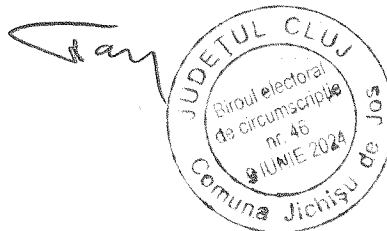 JUDEȚUL CLUJ
Biroul electoral
de circumscripție
nr. 46
9 IUNIE 2024
Comuna Jichișu de Jos